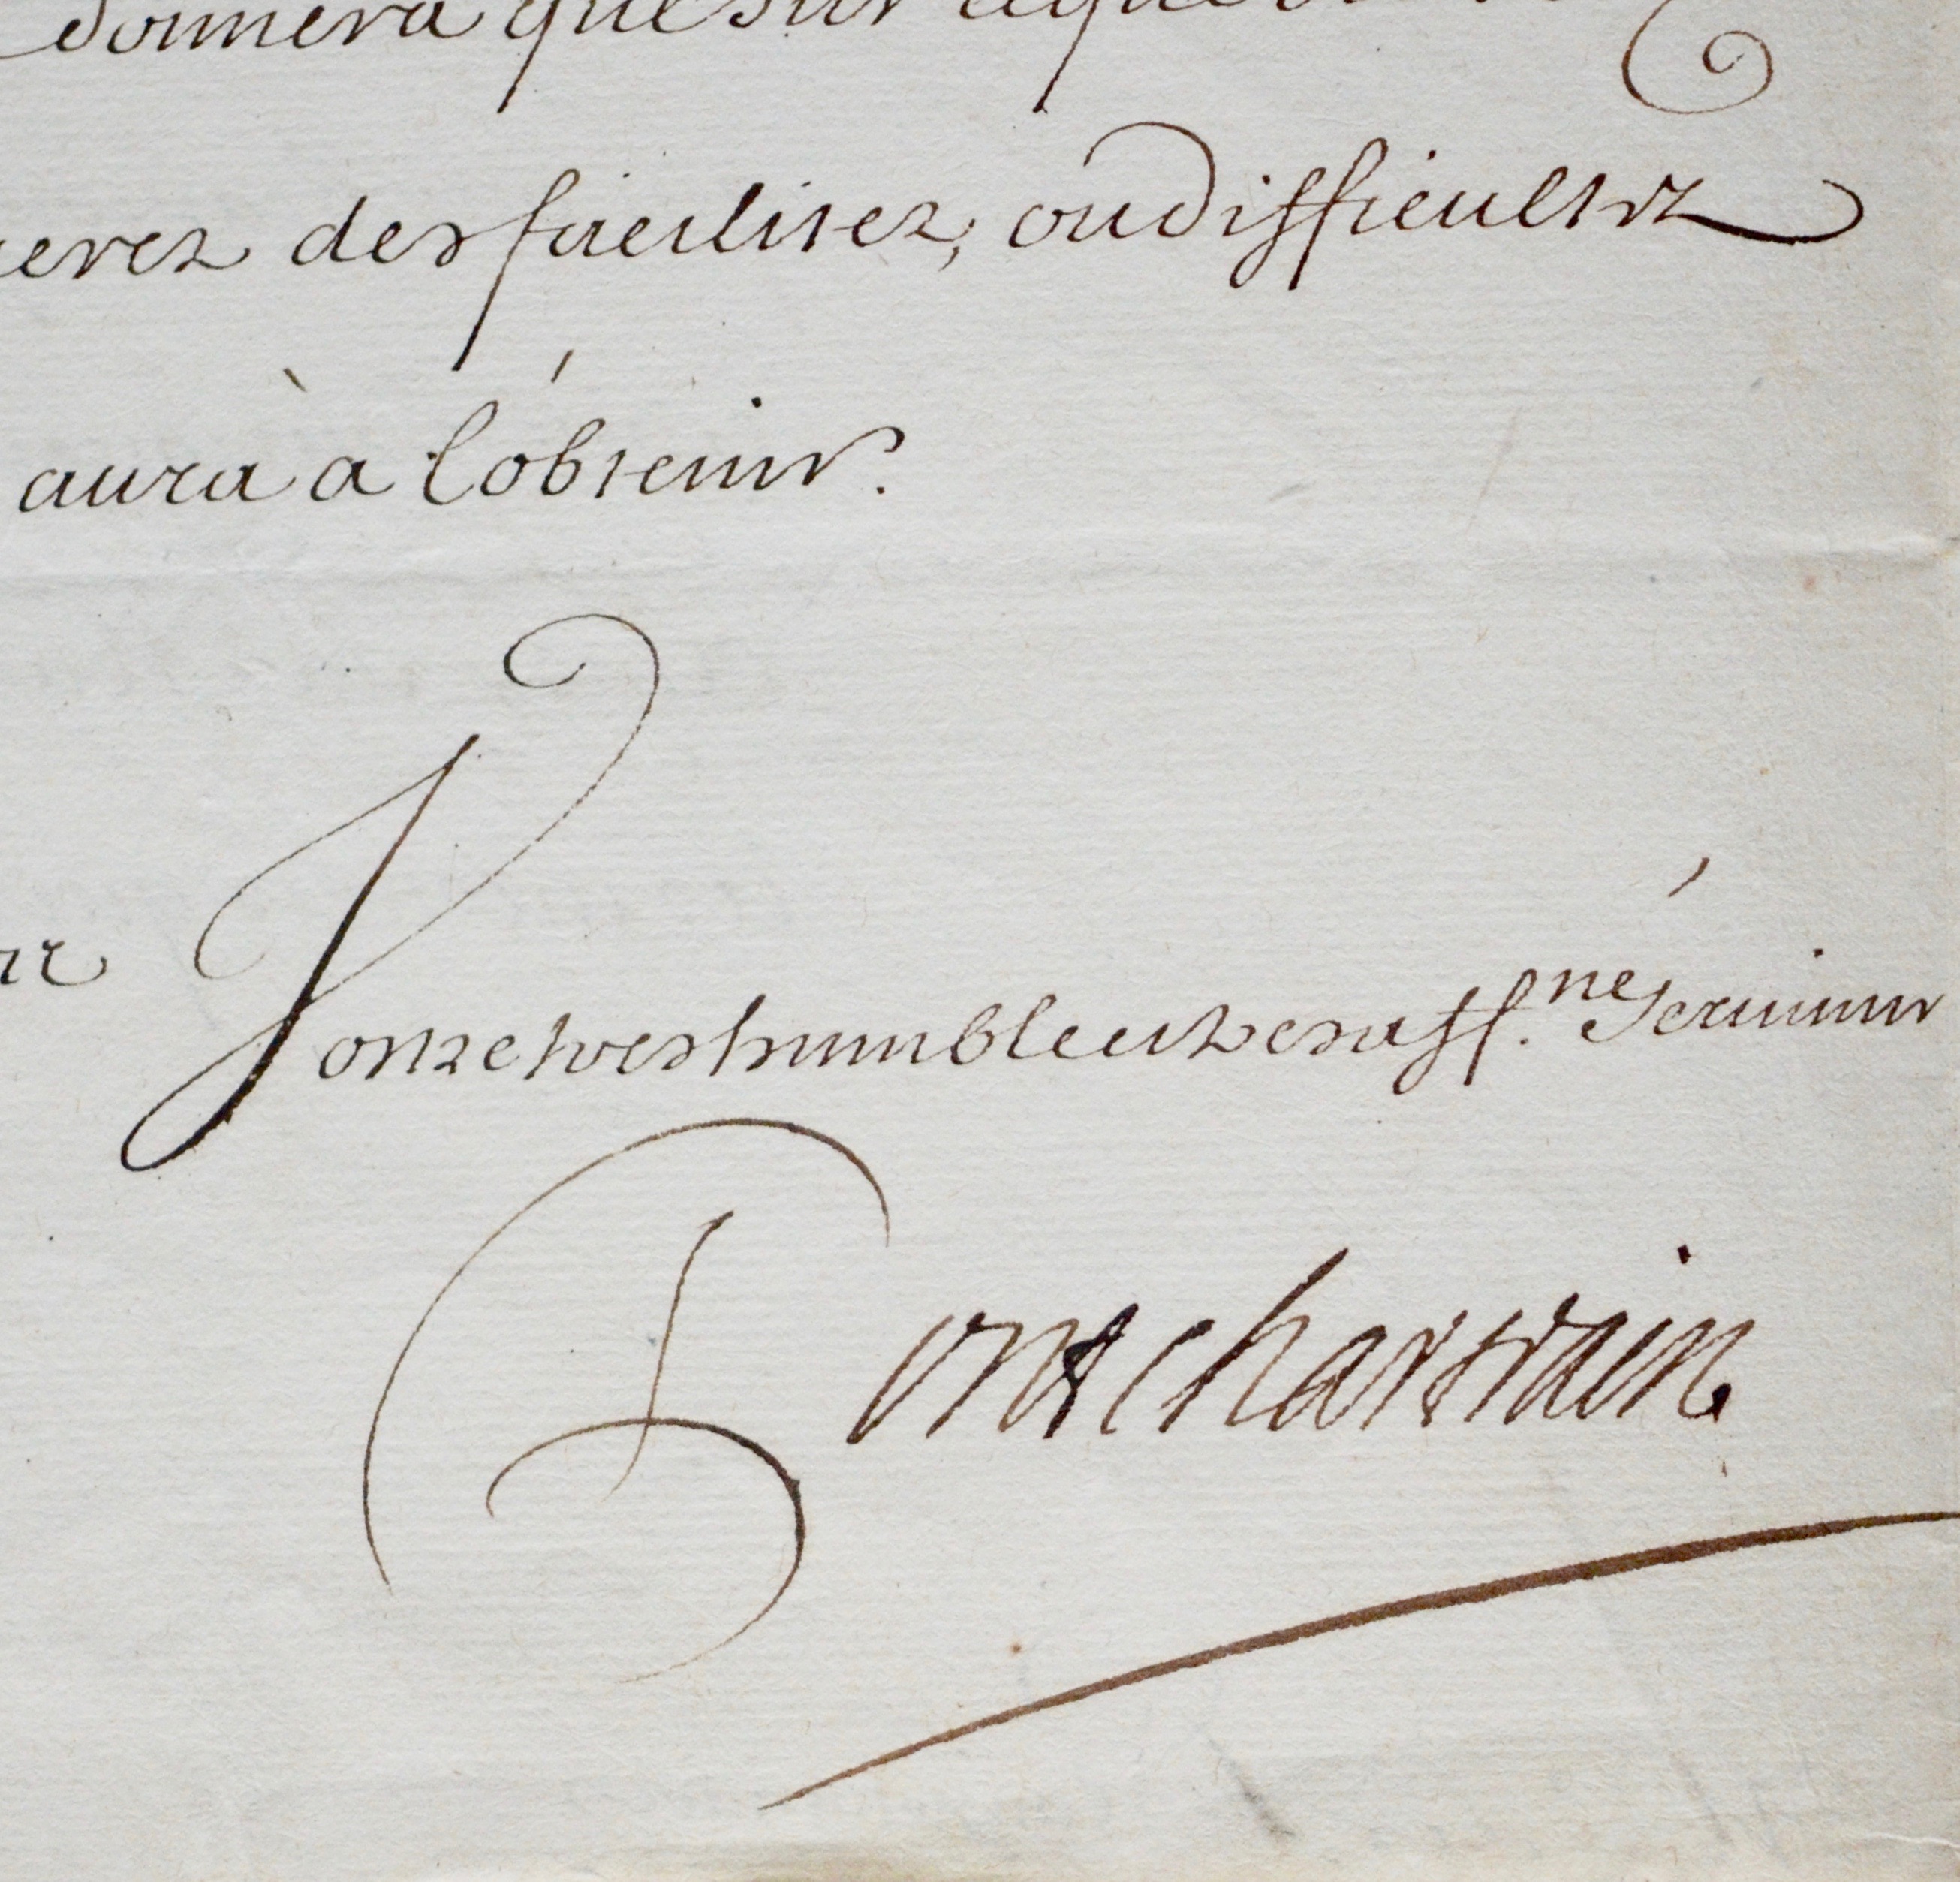 donnera que sur
des facilitez, ou difficultez
aura à l'obtenir.
Vostre tres humble et tres aff.né seruiteur
Pontchartrain